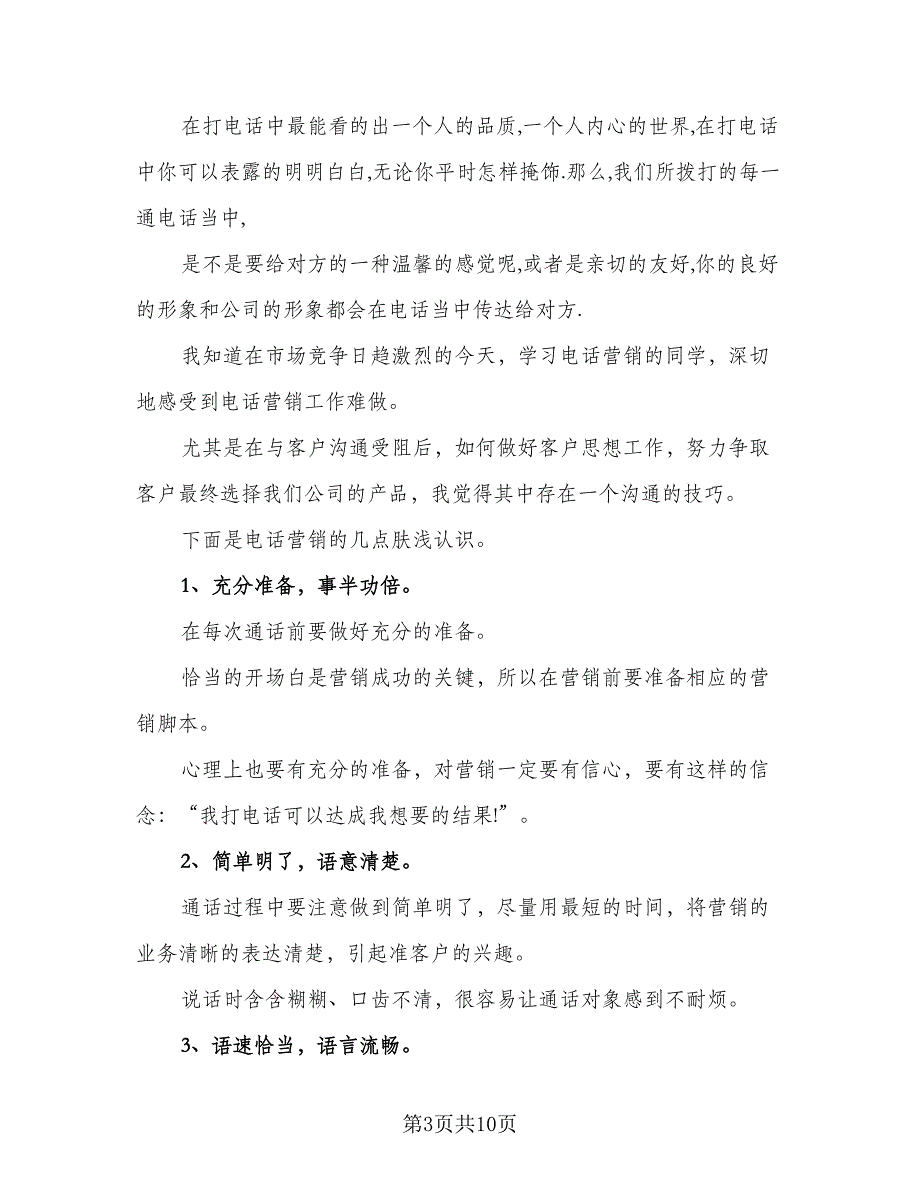 在打电话中最能看的出一个人的品质,一个人内心的世界,在打电话
中你可以表露的明明白白,无论你平时怎样掩饰.那么,我们所拨打的每一
通电话当中,
是不是要给对方的一种温馨的感觉呢,或者是亲切的友好,你的良好
的形象和公司的形象都会在电话当中传达给对方.
我知道在市场竞争日趋激烈的今天，学习电话营销的同学，深切
地感受到电话营销工作难做。
尤其是在与客户沟通受阻后，如何做好客户思想工作，努力争取
客户最终选择我们公司的产品，我觉得其中存在一个沟通的技巧。
下面是电话营销的几点肤浅认识。
1、充分准备，事半功倍。
在每次通话前要做好充分的准备。
恰当的开场白是营销成功的关键，所以在营销前要准备相应的营
销脚本。
心理上也要有充分的准备，对营销一定要有信心，要有这样的信
念：“我打电话可以达成我想要的结果!”。
2、简单明了，语意清楚。
通话过程中要注意做到简单明了，尽量用最短的时间，将营销的
业务清晰的表达清楚，引起准客户的兴趣。
说话时含含糊糊、口齿不清，很容易让通话对象感到不耐烦。
3、语速恰当，语言流畅。
第3页共10页